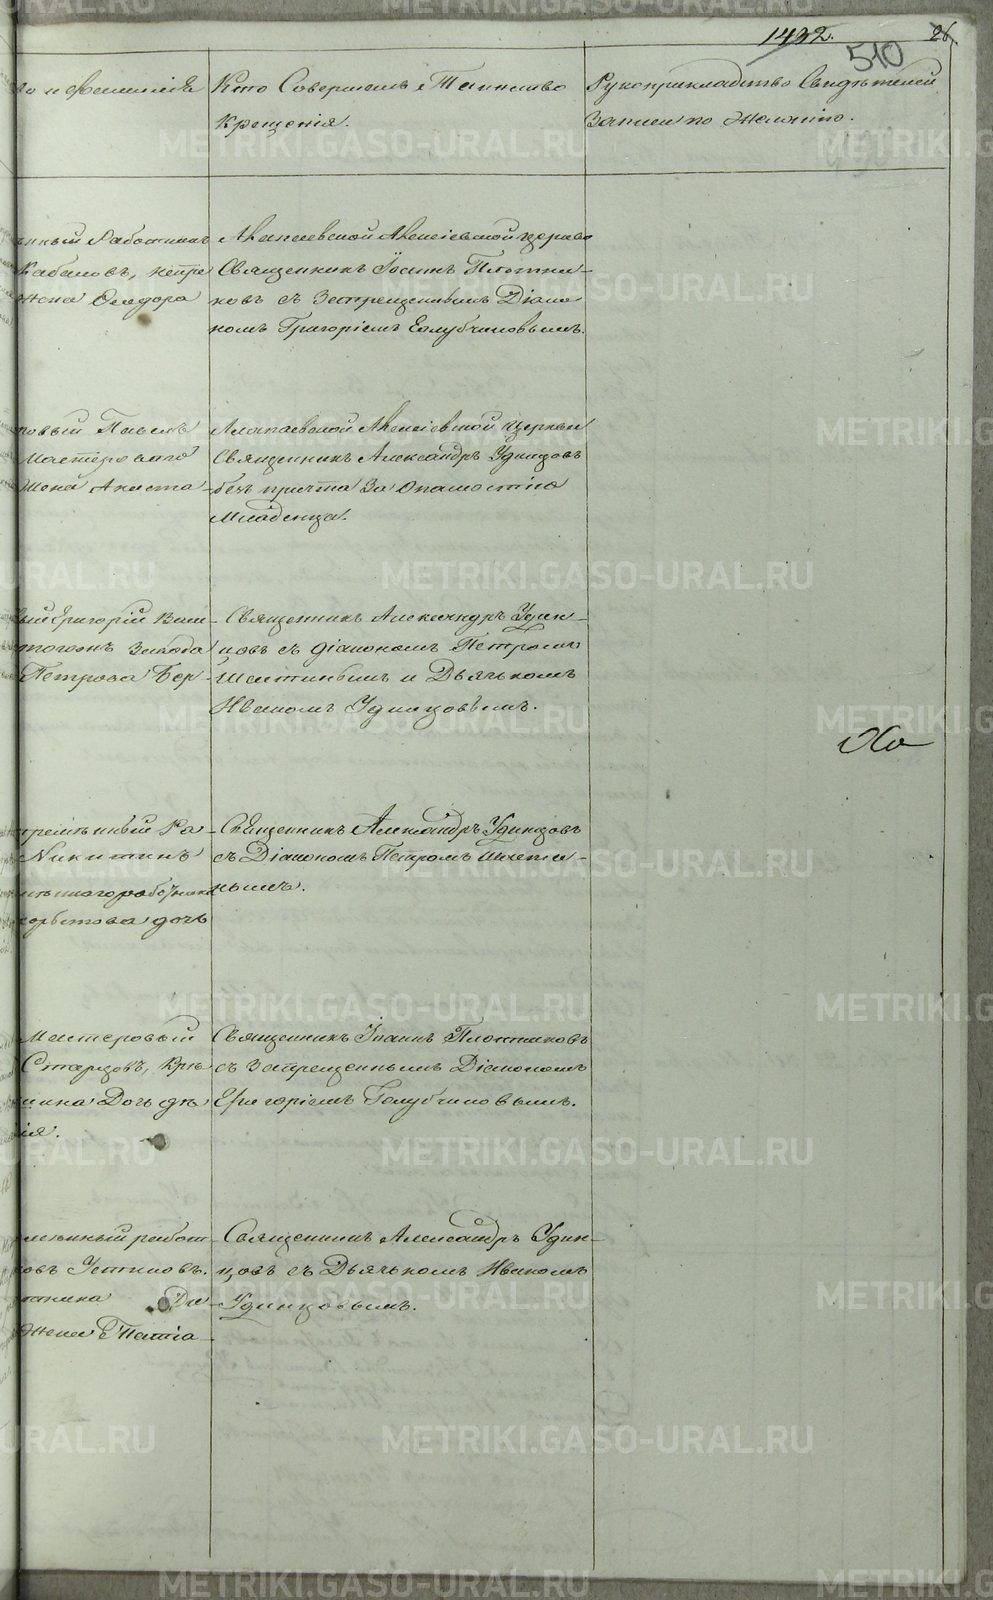 1432. 26.
510
во и фамилія
Кто Совершалъ Таинство
Крещенія.
Рукоприкладство Свидѣтелей
Записи по Желанію.
Работникъ
Кабаковъ, непре
жена Ѳеодора
Алапаевской Алексіевской церкви
Священникъ Іоаннъ Плотни-
ковъ съ Запрещеннымъ Діако-
номъ Григоріемъ Голубчиковымъ.
ровый Павелъ
Мастероваго
Жена Аниста
Алапаевской Алексіевской церкви
Священникъ Александръ Удинцовъ
безъ причта За Опасностію
Младенца.
вый Григорій Васи-
Завода
Петрова Бер-
Священникъ Александръ Удин-
цовъ съ діакономъ Петромъ
Шептинымъ и Дьячькомъ
Иваномъ Удинцовымъ.
Ра-
Никитинъ
наго работника
дочь
Священникъ Александръ Удинцовъ
съ Діакономъ Петромъ
нымъ.
Мастеровый
Старцовъ, Кре
Дочь дѣ
ія.
Священникъ Іоаннъ Плотниковъ
съ Запрещеннымъ Діакономъ
Григоріемъ Голубчиковымъ.
работ
овъ Устиновъ.
тника Да
Жена Ѵпатіа
Священникъ Александръ Удин-
цовъ съ Дьячькомъ Иваномъ
Удинцовымъ.
METRIKI.GASO-URAL.RU